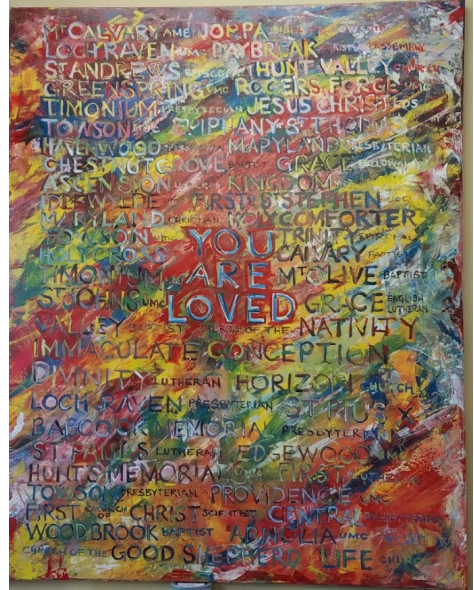 MT CALVARY AME JOPPA
LOCH RAVEN UMC DAYBREAK ASSEMBLY
ST ANDREWS HUNT VALLEY CHURCH
GREENSPRING UMC RODGERS FORGE UMC
TIMONIUM PRESBYTERIAN JESUS CHRIST LDS
TOWSON EPIPHANY ST THOMAS
HAVENWOOD PRESBYTERIAN MARYLAND PRESBYTERIAN
CHESTNUT GROVE BAPTIST GRACE FELLOWSHIP
ASCENSION LUTHERAN KINGDOM
IDLEWYLDE FIRST ST STEPHEN
MARYLAND CHRISTIAN HOLY COMFORTER
TOWSON YOU TRINITY
HOLY CROSS CALVARY BAPTIST
TIMONIUM ARE MT OLIVE BAPTIST
ST JOHNS UMC LOVED GRACE ENGLISH LUTHERAN
VALLEY BAPTIST CHURCH OF THE NATIVITY
IMMACULATE CONCEPTION
DIVINITY LUTHERAN HORIZON CHURCH
LOCH RAVEN PRESBYTERIAN ST PIUS X
BABCOCK MEMORIAL PRESBYTERIAN
ST PAULS LUTHERAN EDGEWOOD
HUNTS MEMORIAL FIRST LUTHERAN
TOWSON PRESBYTERIAN PROVIDENCE UMC
FIRST CHURCH OF CHRIST SCIENTIST CENTRAL PRESBYTERIAN
WOODBROOK BAPTIST UMC
CHURCH OF THE GOOD SHEPPERD LIFE CHURCH